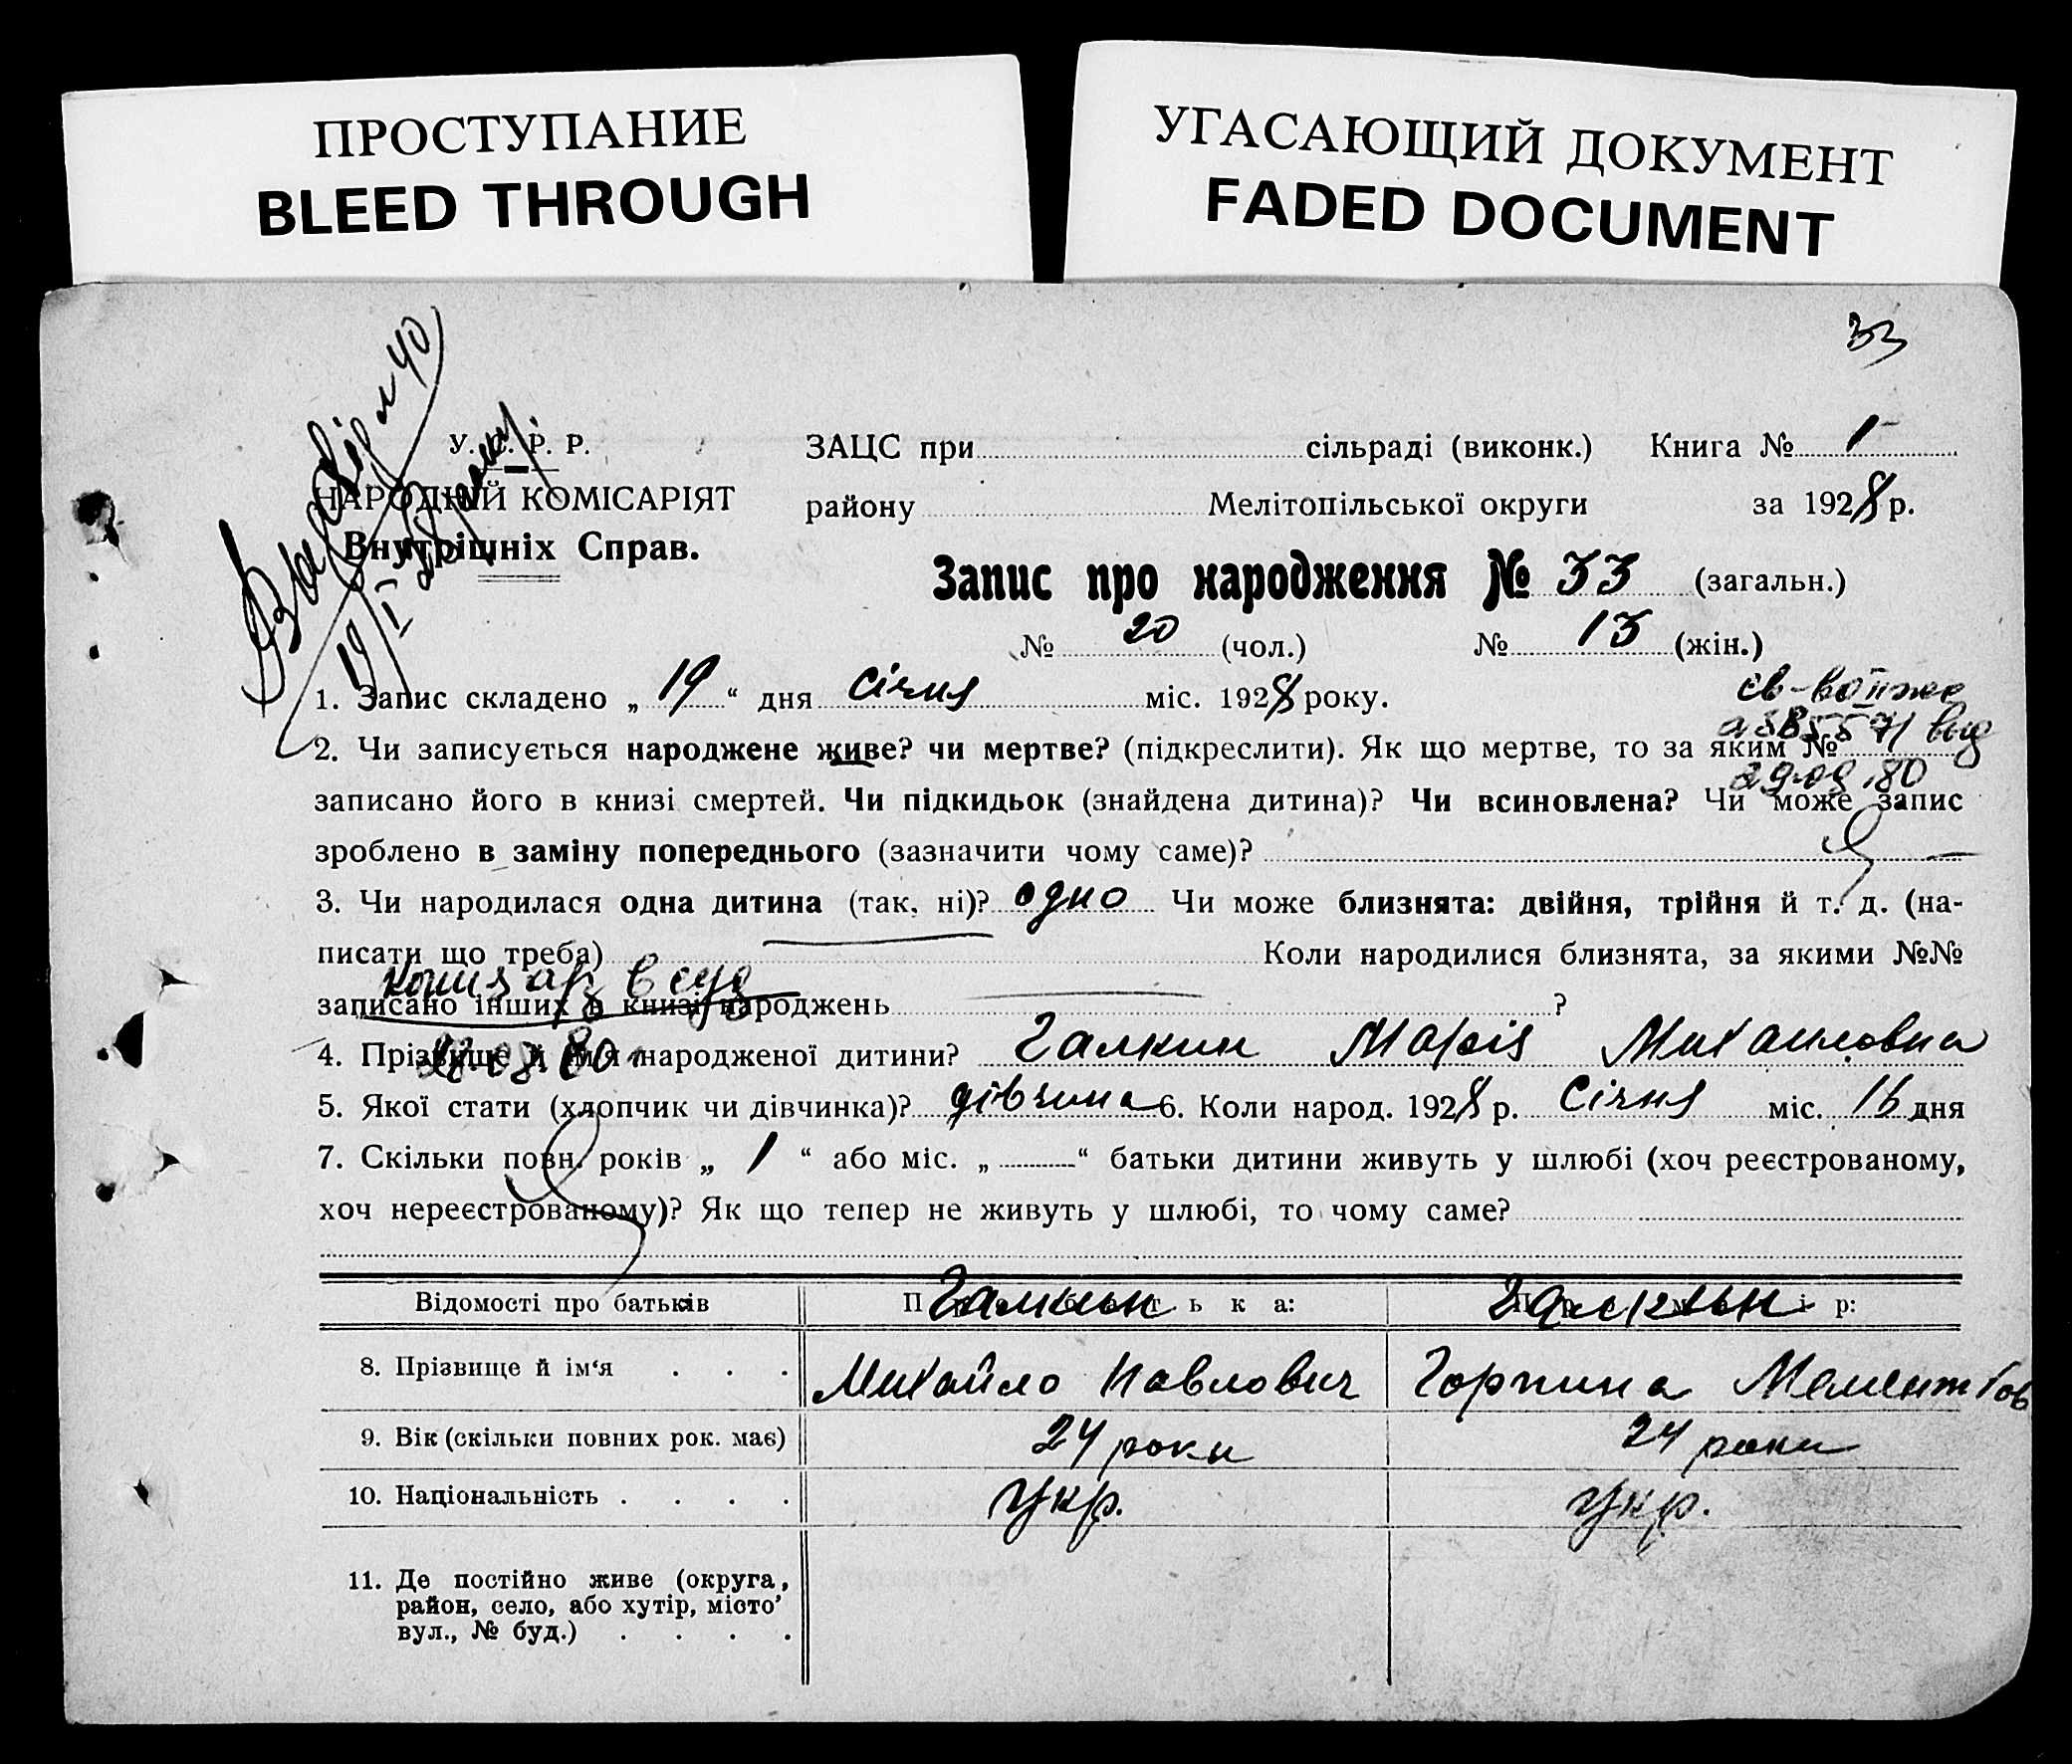 ПРОСТУПАНИЕ
BLEED THROUGH
УГАСАЮЩИЙ ДОКУМЕНТ
FADED DOCUMENT
33
У. С. Р. Р.
НАРОДНІЙ КОМІСАРІЯТ
Внутрішніх Справ.
ЗАЦС при сільраді (виконк.) Книга № 1
району Мелітопільської округи за 1928 р.
Запис про народження № 33 (загальн.)
№ 20 (чол.) № 13 (жін.)
1. Запис складено „ 19 “ дня Січня міс. 1928 року.
2. Чи записується народжене живе? чи мертве? (підкреслити). Як що мертве, то за яким №
29.09.80
записано його в книзі смертей. Чи підкидьок (знайдена дитина)? Чи всиновлена? Чи може запис
зроблено в заміну попереднього (зазначити чому саме)?
3. Чи народилася одна дитина (так, ні)? одно Чи може близнята: двійня, трійня й т. д. (на-
писати що треба) Коли народилися близнята, за якими №№
в суд
записано інших в книзі народжень ?
4. Прізвище й ім'я народженої дитини? Галкин Марія Михайловна
5. Якої стати (хлопчик чи дівчинка)? дівчина 6. Коли народ. 1928 р. Січня міс. 16 дня
7. Скільки повн. років „ 1 “ або міс. „ “ батьки дитини живуть у шлюбі (хоч реєстрованому,
хоч нереєстрованому)? Як що тепер не живуть у шлюбі, то чому саме?
Відомості про батьків Про батька: Про матір:
Галкин Галкин
8. Прізвище й ім‘я . . . Михайло Павлович Горпина
9. Вік (скільки повних рок. має) 24 роки 24 роки
10. Національність . . . . Укр. Укр.
11. Де постійно живе (округа,
район, село, або хутір, місто’
вул., № буд.) . . . .